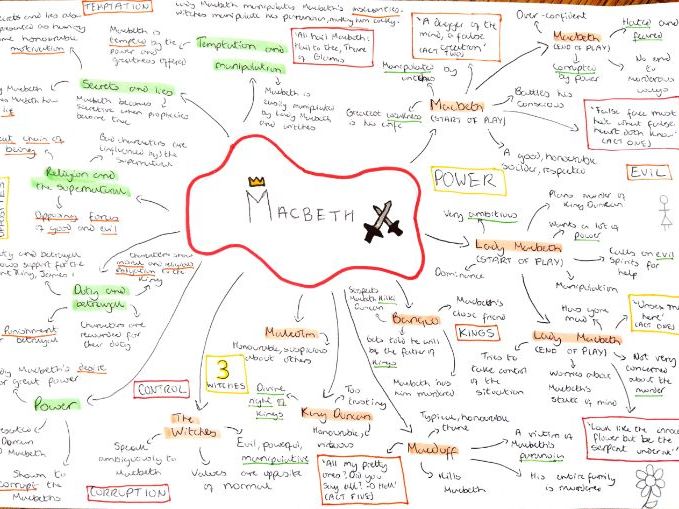 TEMPTATION
Lady Macbeth manipulates Macbeth's
witches manipulate his paranoia, making him cocky.
Secrets and lies also
motivation
Macbeth is
tempted by the
power and
greatness offered
Temptation and
manipulation
"All hail Macbeth!
Hail to thee, Thane
of Glamis
Macbeth is
easily manipulated
by Lady Macbeth
and witches
Secrets and lies
Macbeth becomes
secretive when prophecies
become true
great chain of
being
Bad characters are
influenced by the
supernatural
Religion and
the supernatural
Opposing forces
of good and evil
OPPOSITES
Duty and betrayal
shows support for the
King, James I
Characters show
moral and religious
obligation to the
King
Duty and
betrayal
Punishment
betrayal
Characters are
rewarded for
their duty
Lady Macbeth's desire
for great power
Power
Shown to
corrupt the
Macbeths
CONTROL
CORRUPTION
MACBETH
3
WITCHES
The
Witches
Speak
ambiguously to
Macbeth
Evil, powerful,
manipulative
Values are opposite
of normal
Malcolm
Honourable, suspicious
about others
Divine
right of
Kings
King Duncan
Too
trusting
Honourable,
virtuous
"All my pretty
ones? Did you
say all? O Hell"
(ACT FIVE)
Suspects
Macbeth killed
Duncan
Banquo
Macbeth's
close friend
Gets told he will
be the father of
Kings
Macbeth has
him murdered
KINGS
Macduff
Typical, honourable
thane
A victim of
Macbeth's
paranoia
His entire family
is murdered
Kills
Macbeth
"A dagger of the
mind, a false
creation"
(ACT TWO)
Manipulated by
Greatest weakness
is his wife
Macbeth
(START OF PLAY)
Battles his
conscious
A good, honourable
soldier, respected
Over-confident
Macbeth
(END OF PLAY)
Hated and
feared
Corrupted
by power
No end to
murderous
ways
"False face must
hide what false
heart doth know"
(ACT ONE)
POWER
EVIL
Very ambitious
Plans murder of
King Duncan
Wants a lot of
power
Lady Macbeth
(START OF PLAY)
Calls on evil
spirits for
help
Dominance
Manipulation
Has gone
mad
"Unsex me
here"
(ACT ONE)
Lady Macbeth
(END OF PLAY)
Tries to
take control
of the
situation
Worries about
Macbeth's
state of mind
Not very
concerned
about the
murder
"Look like the innocent
flower but be the
serpent under it"